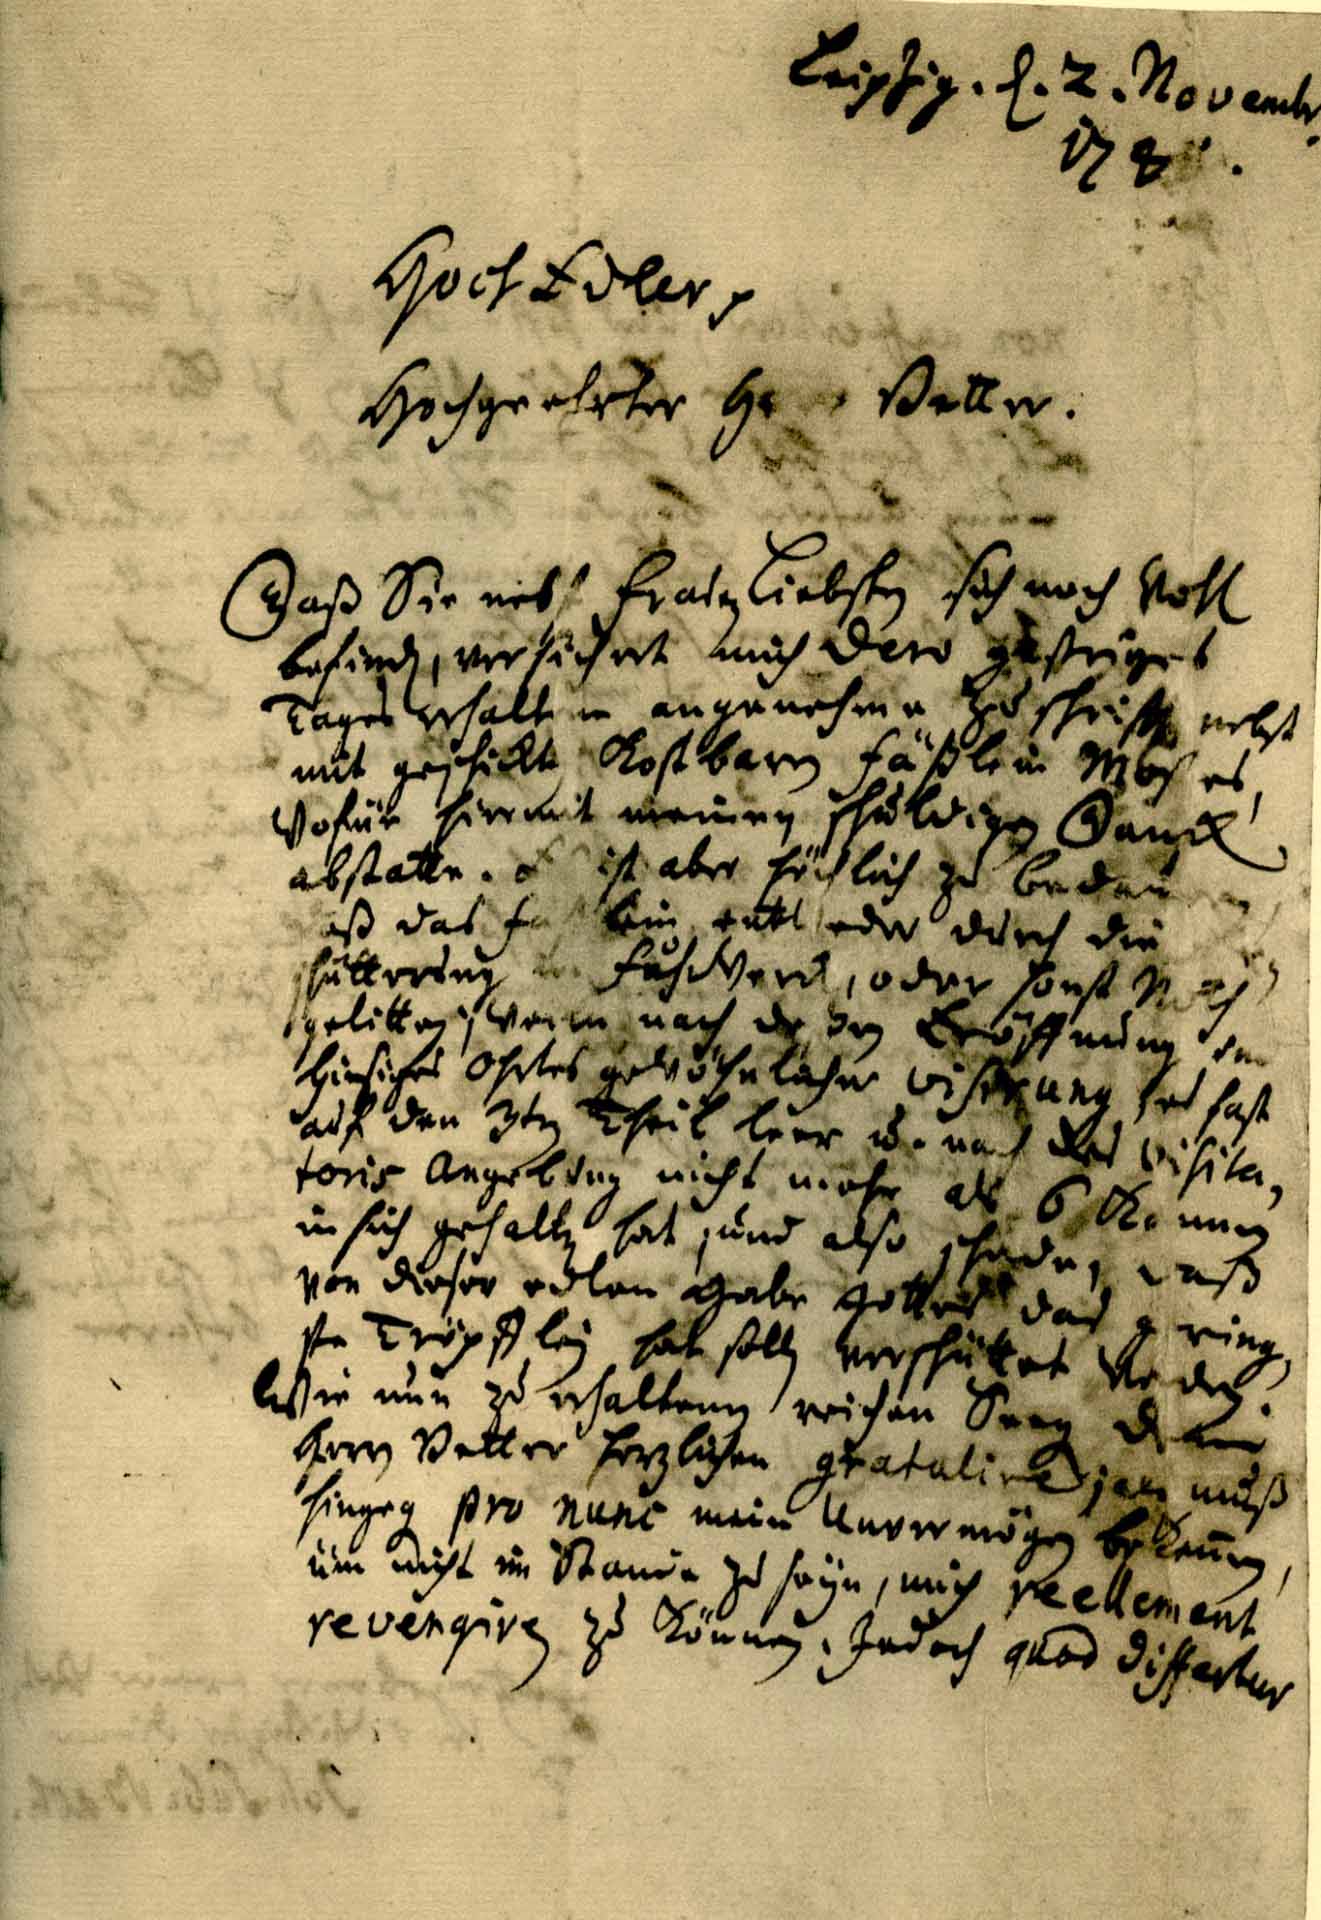 Leipzig. d. 2. Novembr.
174
HochEdler,
Hochgeehrter Vetter.
Daß Sie nebst Frauen Liebsten sich noch wohl
befinden, versichert mich Dero gestriges
Tages erhaltene angenehme Zuschrifft nebst
mit geschickten kostbaren Fäßlein Mostes,
wofür hiermit meinen schuldigen Danck
abstatte. ist aber höchlich zu bedau
aß das lein entweder durch die
schütterung Fuhrwerck, oder sonst Noth
gelitten; weiln nach deßen Eröffnung
hiesiges Ohrtes gewöhnlicher visirung es fast
auf den 3ten Theil leer u. nach des visita-
toris Angebung nicht mehr als 6 Kannen
in sich gehalten hat; und also schade, daß
von dieser edlen Gabe Gottes das gering-
ste Tröpfflein hat sollen verschüttet werden.
Wie nun zu erhaltenen reichen Seegen dem
Herrn Vetter herzlichen gratulire; muß
hingegen pro nunc mein Unvermögen bekennen,
üm nicht im Stande zu seyn, mich reellement
revengiren zu können. Jedoch quod differtur